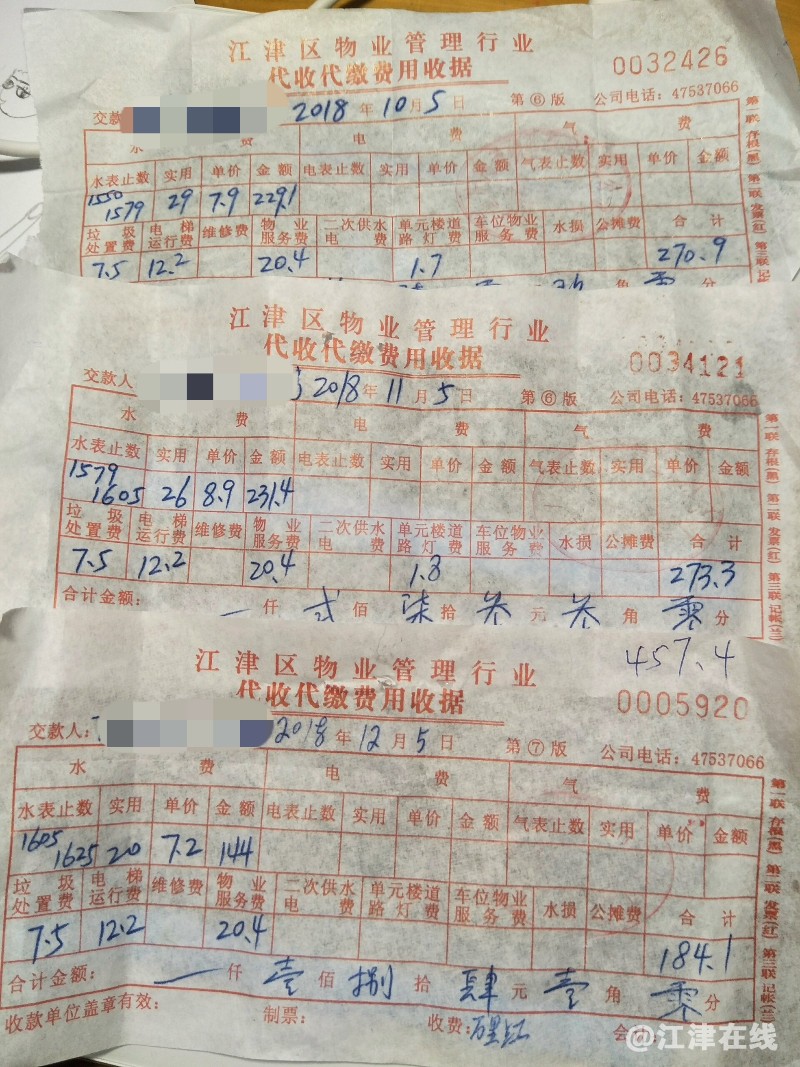 江津区物业管理行业
代收代缴费用收据 0032426
交款 2018年10月5日 第⑥版 公司电话：47537066
水 费 电 费 气 费
水表止数 实用 单价 金额 电表止数 实用 单价 金额 气表止数 实用 单价 金额
1550
1579 29 7.9 229.1
垃圾处置费 电梯运行费 维修费 物业服务费 二次供水电费 单元楼道路灯费 车位物业服务费 水损 公摊费 合计
7.5 12.2 20.4 1.7 270.9
角 零 分
第一联 存根(黑) 第二联 发票(红) 第三联 记
江津区物业管理行业
代收代缴费用收据 0034121
交款人 2018年11月5日 第⑥版 公司电话：47537066
水 费 电 费 气 费
水表止数 实用 单价 金额 电表止数 实用 单价 金额 气表止数 实用 单价 金额
1579
1605 26 8.9 231.4
垃圾处置费 电梯运行费 维修费 物业服务费 二次供水电费 单元楼道路灯费 车位物业服务费 水损 公摊费 合计
7.5 12.2 20.4 1.8 273.3
合计金额： 一仟 贰佰 柒拾 叁元 叁角 零分
第一联 存根(黑) 第二联 发票(红) 第三联 记帐(兰)
457.4
江津区物业管理行业
代收代缴费用收据 0005920
交款人： 2018年12月5日 第⑦版 公司电话：47537066
水 费 电 费 气 费
水表止数 实用 单价 金额 电表止数 实用 单价 金额 气表止数 实用 单价 金额
1605
1625 20 7.2 144
垃圾处置费 电梯运行费 维修费 物业服务费 二次供水电费 单元楼道路灯费 车位物业服务费 水损 公摊费 合计
7.5 12.2 20.4 184.1
合计金额： 一仟 壹佰 捌拾 肆元 壹角 零分
收款单位盖章有效： 制票： 收费： 会计：
第一联 存根(黑) 第二联 发票(红) 第三联 记帐(兰)
@江津在线